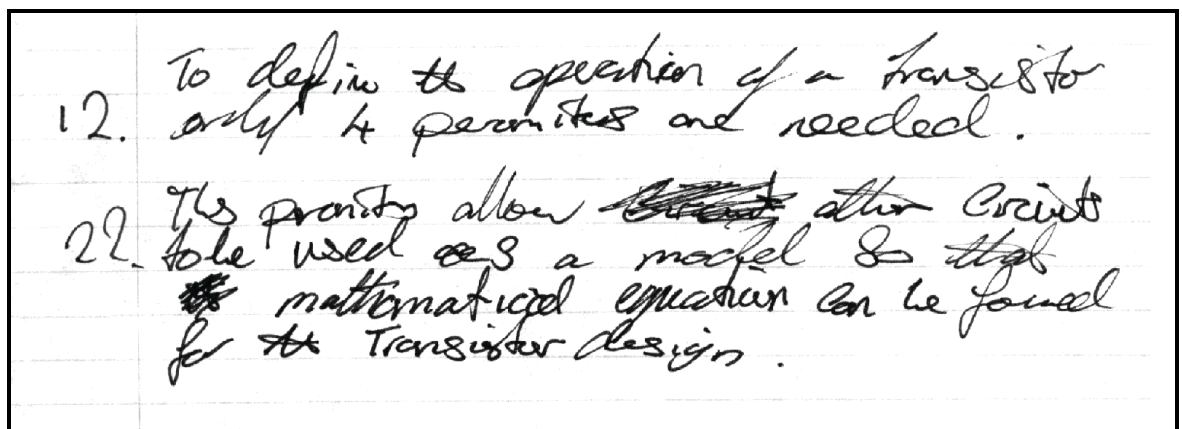 To defin the operation of a transisto
12. only 4 peramiters are needed.
Ths pramitrs allow other Circuits
22. to be used as a model So that
mathematical equation can be found
for the Transistor design.